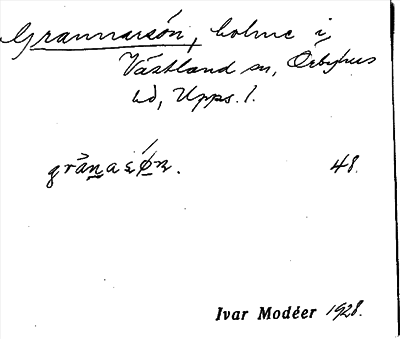 Grannarsön, holme i
Västland sn, Örbyhus
hd, Upps. l.
grånasøn. 48.
Ivar Modéer 1928.